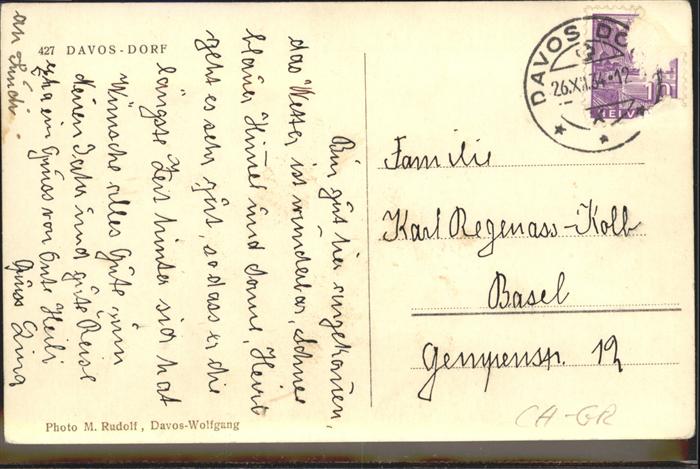 427 DAVOS - DORF
Bin gut hier angekommen,
das Wetter ist wunderbar, Schnee
blauer Himmel und Sonne, Heiri
geht es sehr gut, so dass er die
längste Zeit hinter sich hat
Wünsche alles Gute zum
Neuen Jahr und gute Reise
Extra ein Gruss von Heiri
an
Gruss
Photo M. Rudolf, Davos-Wolfgang
DAVOS DO
26.XII.34-12
HELV
Familie
Karl Regenass-Kolb
Basel
Gempenstr. 12
CH-GR